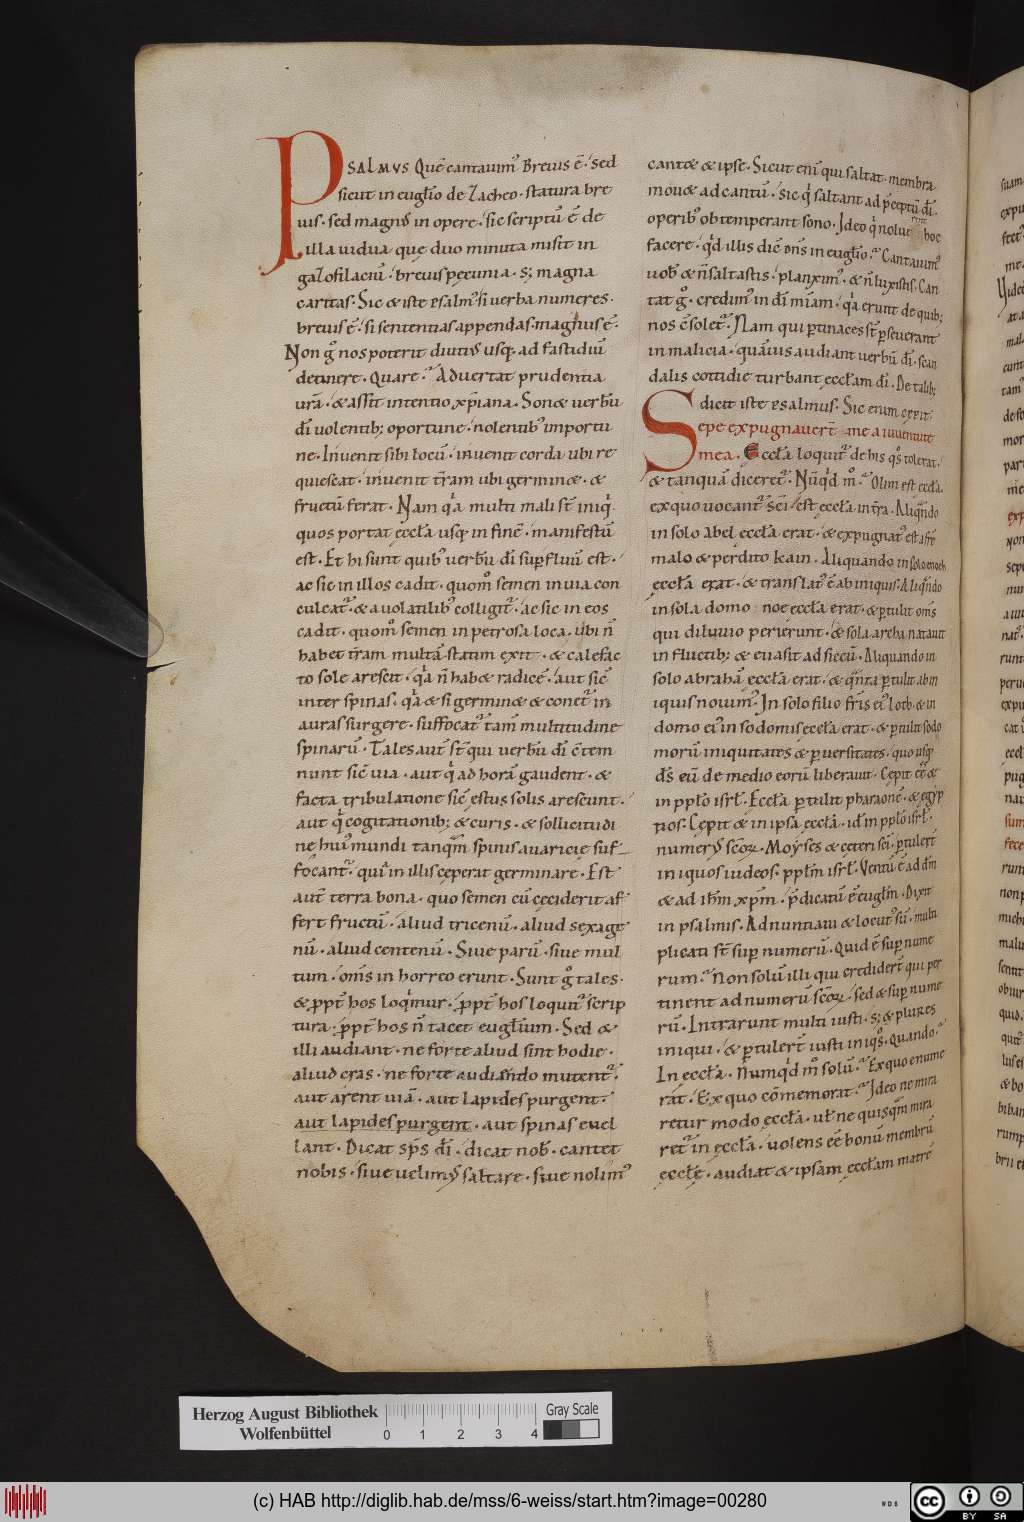 PSALMVS Quē cantauim᷒ Breuis ē · sed
sicut in eugl̄io de Zacheo · statura bre
uis · sed magn᷒ in opere · sic scriptū ē de
illa uidua que duo minuta misit in
gazofilaciū · breuis pecunia · s; magna
caritas · Sic & iste psalm᷒ si uerba numeres ·
breuis ē · si sententias appendas · magnus ē ·
Non g̊ nos poterit diuti᷒ usq; ad fastidiū
detinere · Quare · Aduertat prudentia
urā · & assit intentio xp̄iana · Son& uerbū
dī uolentib; oportune · nolentib᷒ importu
ne · Inuenit sibi locū · inuenit corda ubi re
quiescat · inuenit t̄ram ubi germin& · &
fructū ferat · Nam qa multi mali st̄ iniq
quos portat eccl̄a usq; in finē · manifestū
est · Et hi sunt quib᷒ uerbū dī supfluū est ·
ac sic in illos cadit · quom̊ semen in uia con
culcat᷑ · & a uolatilib᷒ colligit᷑ · ac sic in eos
cadit · quom̊ semen in petrosa loca · ubi n̄
habet t̄ram multā · statim exiit · & calefac
to sole arescit · qa n̄ hab& radicē · aut sic̄
inter spinas · qa & si germin& & conet᷑ in
auras surgere · suffocat᷑ tam̄ multitudine
spinarū · Tales aut̄ st̄ qui uerbū dī c̄tem
nunt sic̄ uia · aut q ad horā gaudent · &
facta tribulatione sic̄ estus solis arescunt ·
aut q cogitationib; & curis · & sollicitudi
ne hui᷒ mundi tanqm̄ spinis auaricie suf
focant᷑ · qui in illis ceperat germinare · Est
aut̄ terra bona · quo semen cū ceciderit af
fert fructū · aliud tricenū · aliud sexage
nū · aliud centenū · Siue parū · siue mul
tum · om̄s in horreo erunt · Sunt g̊ tales ·
& ppt̄ hos loqimur · ppt̄ hos loquit᷑ scrip
tura · ppt̄ hos n̄ tacet eugl̄ium · Sed &
illi audiant · ne forte aliud sint hodie ·
aliud cras · ne forte audiendo mutent᷑ ·
aut arent uiā · aut lapides purgent ·
aut lapides purgent · aut spinas euel
lant · Dicat sp̄s dī · dicat nob · cantet
nobis · siue uelim᷒ saltare · siue nolim᷒
cant& & ipse · Sicut eni qui saltat · membra
mou& ad cantū · sic q saltant ad pceptū dī ·
operib᷒ obtemperant sono · Ideo q nolunt hoc
facere · qd illis dic̄ dn̄s in eugl̄io · Cantauim᷒
uob & n̄ saltastis · planxim᷒ · & n̄ luxistis · Can
tat g̊ · credim᷒ in dī miam · qa erunt de quib;
nos c̄solet᷑ · Nam qui ptinaces st̄ pseuerant
in malicia · quāuis audiant uerbū dī · scan
dalis cottidie turbant eccl̄am dī · De talib;
dicit iste psalmus · Sic enim cepit ·
Sepe expugnauert̄ me a iuuentute
mea · Eccl̄a loquit᷑ de his qs tolerat ·
& tanquā diceret᷑ · Nūqd m̊ · Olim est eccl̄a
ex quo uocant᷑ sc̄i · est eccl̄a in t̄ra · Aliqndo
in solo abel eccl̄a erat · & expugnat᷒ est a fr̄e
malo & perdito kain · Aliquando in solo enoch
eccl̄a erat · & translat᷒ ē ab iniquis · Aliqndo
in sola domo noe eccl̄a erat · & ptulit om̄s
qui diluuio perierunt · & sola archa natauit
in fluctib; & euasit ad siccū · Aliquando in
solo abrahā eccl̄a erat · & qnta ptulit ab in
iquis nouim᷒ · In solo filio fr̄is ei᷒ Loth · & in
domo ei᷒ in sodomis eccl̄a erat · & ptulit sodo
morū iniquitates & puersitates · quo usq;
ds̄ eū de medio eorū liberauit · Cepit ee &
in pplo isrl̄ · Eccl̄a ptulit pharaonē · & egyp
tios · Cepit & in ipsa eccl̄a · id in pplo isrl̄ ·
numer᷒ scōꝝ · Moyses & ceteri sc̄i · ptulert̄
iniquos iudeos · pplm̄ isrl̄ · Ventū ē ad dn̄m
& ad ihm̄ xpm̄ · pdicatū ē eugl̄m · Dixit
in psalmis · Adnuntiaui & locut᷒ sū · multi
plicati st̄ sup numerū · Quid ē sup nume
rum · Non solū illi qui credidert̄ qui per
tinent ad numerū scōꝝ · sed & sup nume
rū · Intrarunt multi iusti · s; & plures
iniqui · & ptulert̄ iusti iniqs · Quando ·
In eccl̄a · Numqd m̊ solū · Ex quo enume
rat · Ex quo cōmemorat · Ideo ne mira
retur modo eccl̄a · ut ne quisqm mira
ret᷑ in eccl̄a · uolens eē bonū membrū
eccl̄e · audiat & ipsam eccl̄am matrē
Herzog August Bibliothek
Wolfenbüttel
0 1 2 3 4
Gray Scale
(c) HAB http://diglib.hab.de/mss/6-weiss/start.htm?image=00280
cc BY SA